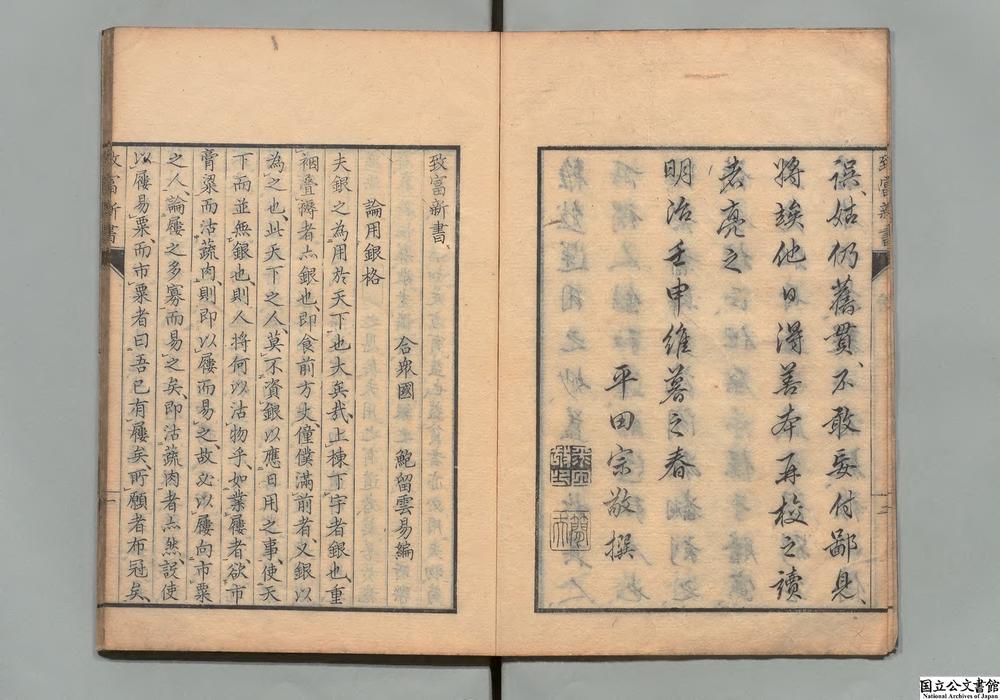 誤、姑仍舊貫、不敢妄付鄙見、
將竢他日得善本再校之讀
者亮之
明治壬申維暮之春
平田宗敬撰
致富新書
致富新書、
合衆國 鮑留雲易編
論用銀格
夫銀之為用於天下也大矣哉、上棟下宇者銀也、重
裀疊褥者亦銀也、即食前方丈、僮僕滿前者、又銀以
為之也、此天下之人、莫不資銀以應日用之事、使天
下而並無銀也、則人將何以沽物乎、如業屨者、欲市
膏粱而沽蔬肉、則即以屨而易之、故必以屨向市粟
之人、論屨之多寡而易之矣、即沽蔬肉者亦然、設使
以屨易粟、而市粟者曰吾已有屨矣、所願者布冠矣、
致富新書
一
国立公文書館
National Archives of Japan